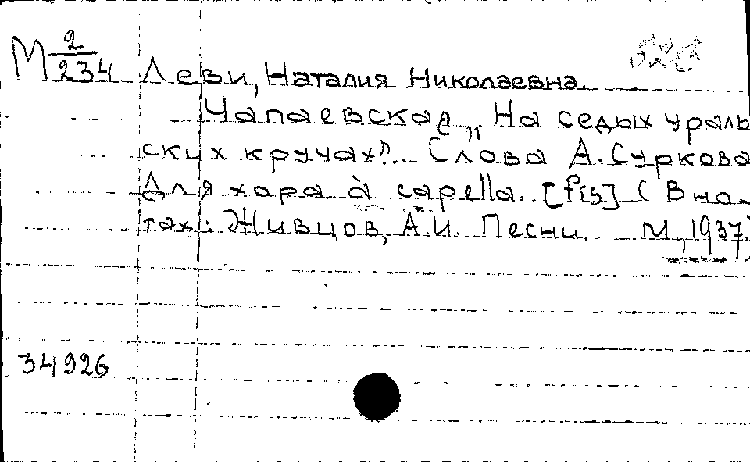 М 2/234 Леви, Наталия Николаевна.
Чапаевская „На седых ураль
ских кручах". Слова А. Суркова
Для хора à capella. [fis] (В но-
тах: Живцов, А.И. Песни. М., 1937)
34926